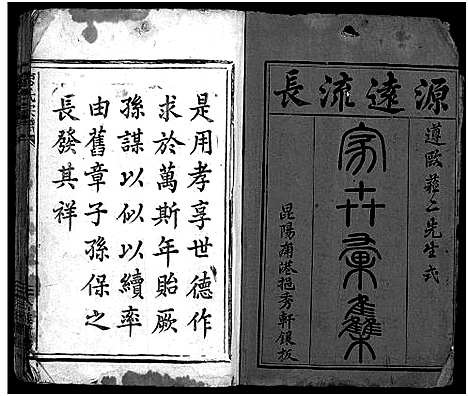 源遠流長
遵歐蘇二先生式
昆陽南港挹秀軒鋟板
是用孝享世德作
求於萬斯年貽厥
孫謀以似以續率
由舊章子孫保之
長發其祥